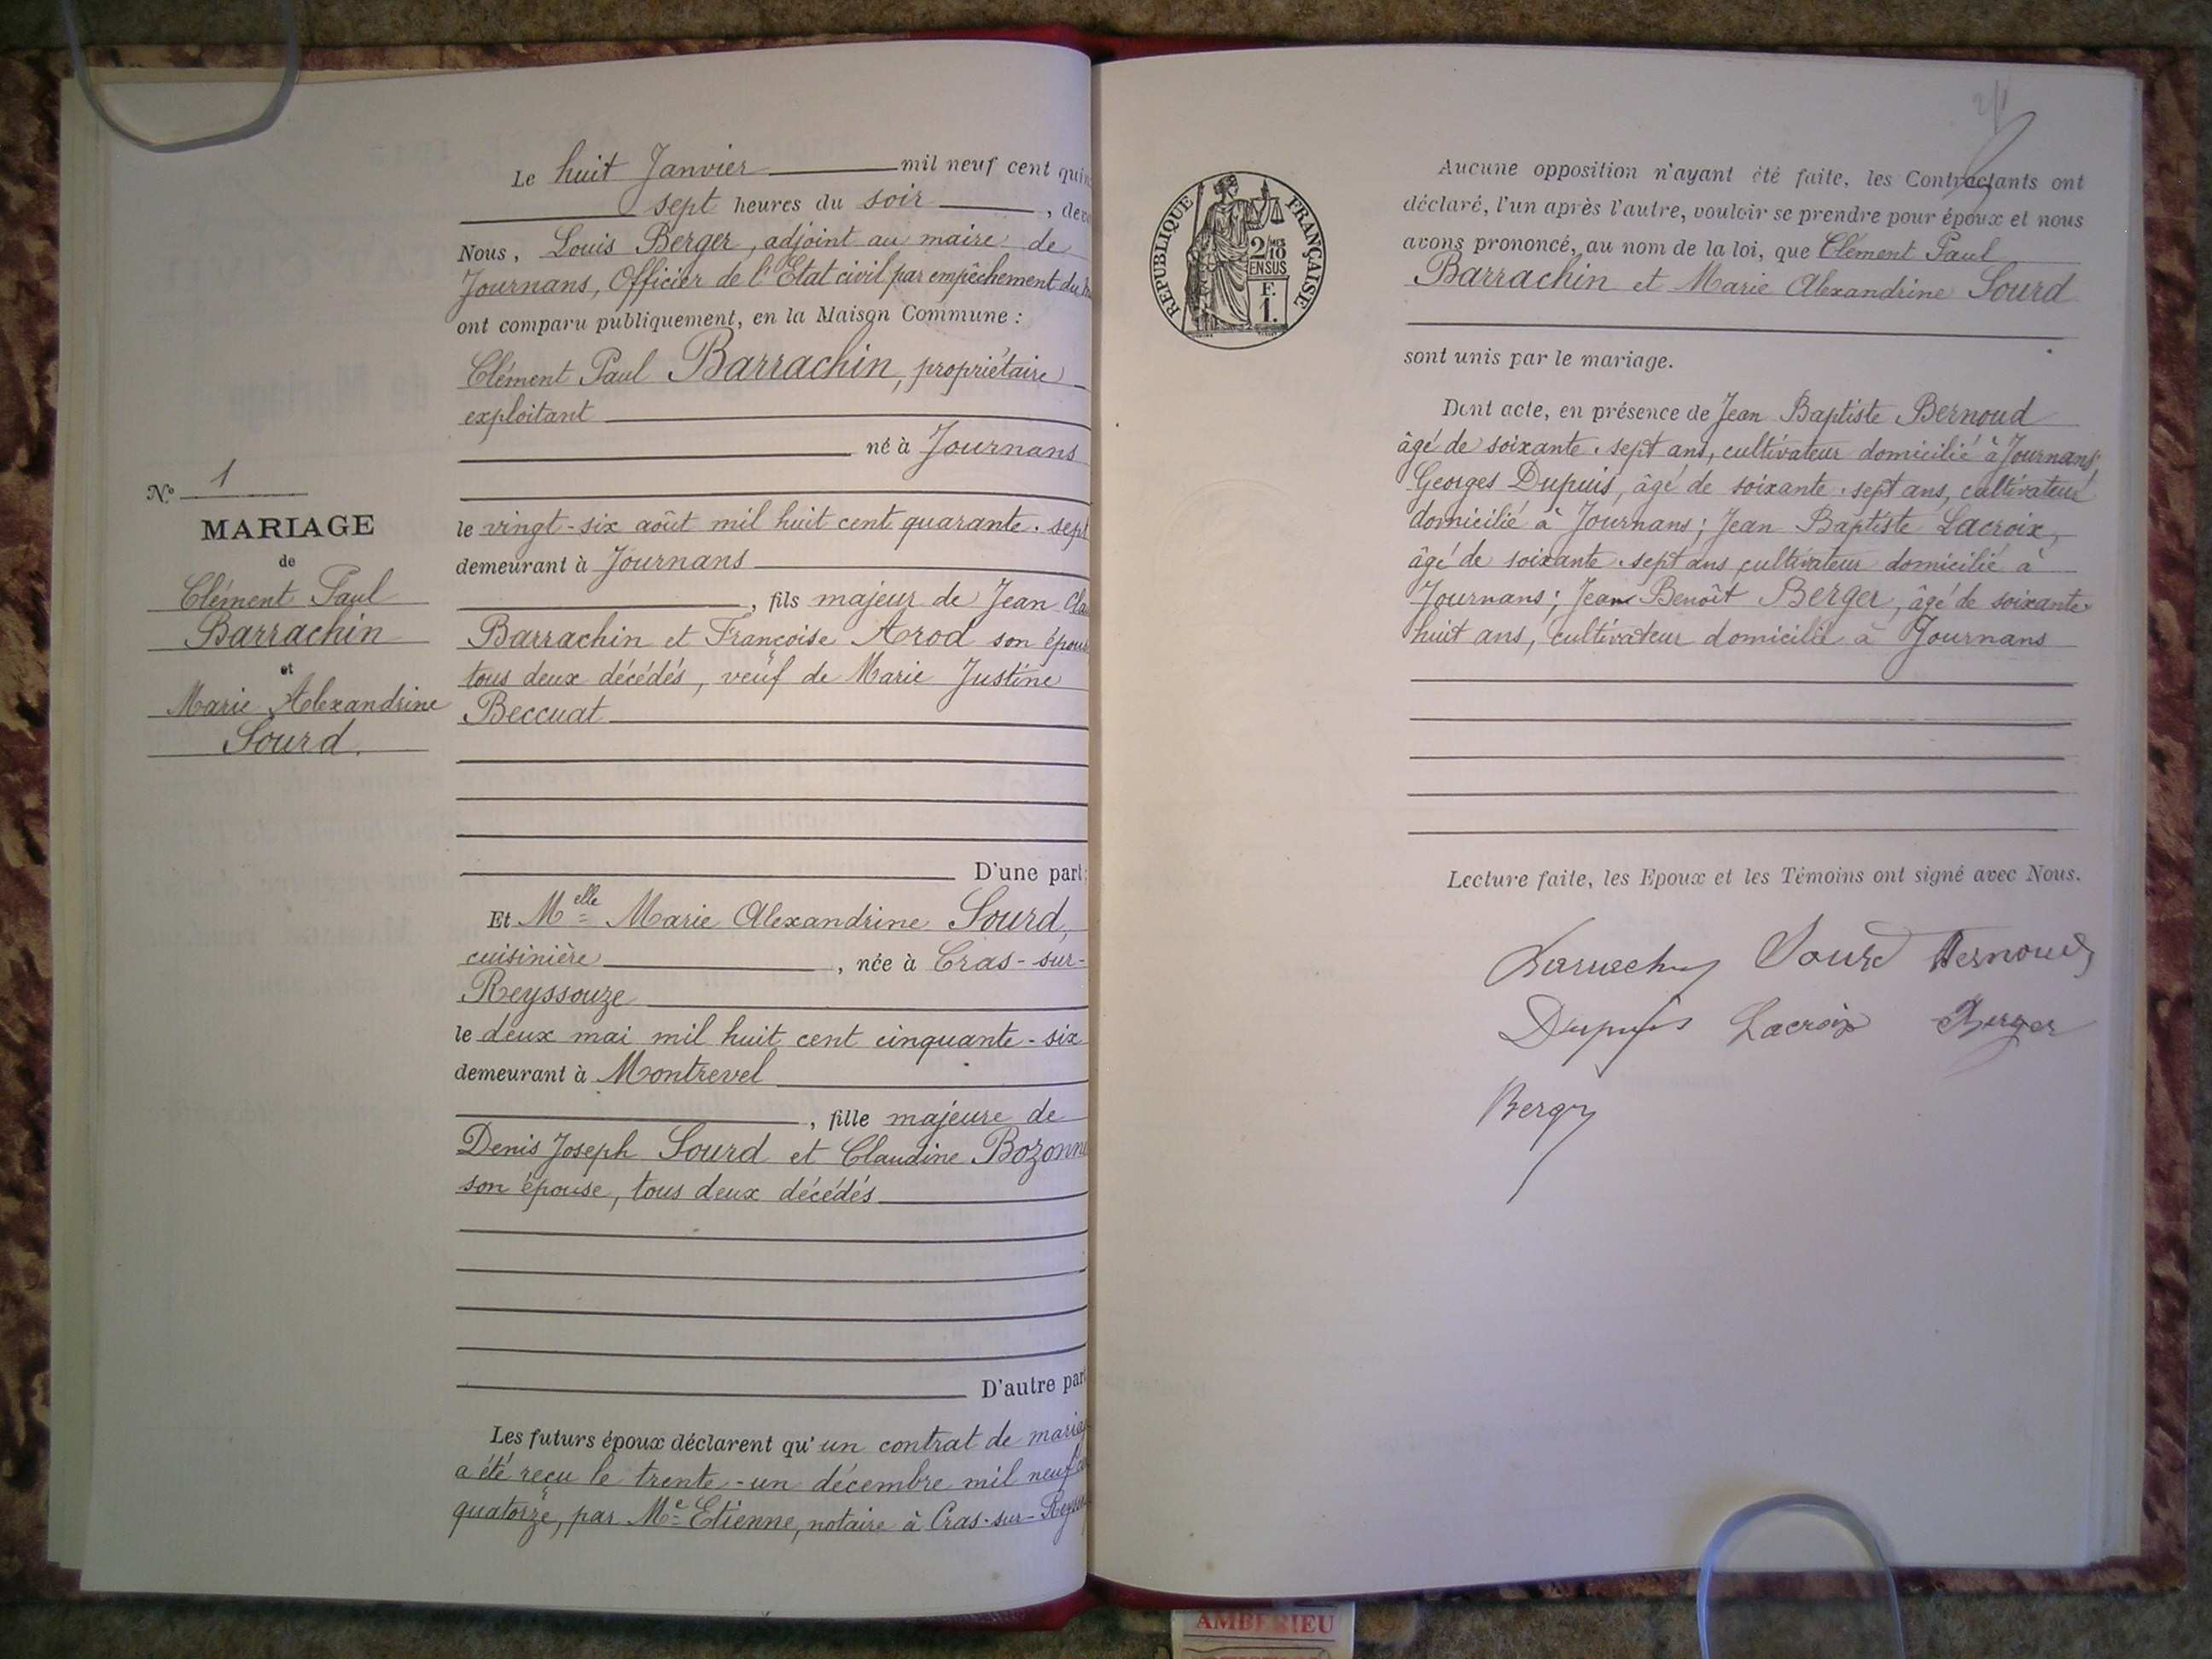 Le huit Janvier mil neuf cent quin
sept heures du soir, dev
Nous, Louis Berger, adjoint au maire de
Journans, Officier de l'Etat civil par empêchement du
ont comparu publiquement, en la Maison Commune :
Clément Paul Barrachin, propriétaire
exploitant
né à Journans
le vingt-six août mil huit cent quarante-sept
demeurant à Journans
, fils majeur de Jean Cla
Barrachin et Françoise Arod son épous
tous deux décédés, veuf de Marie Justine
Beccuat
D'une part;
Et Melle Marie Alexandrine Sourd,
cuisinière, née à Cras-sur-
Reyssouze
le deux mai mil huit cent cinquante-six
demeurant à Montrevel
, fille majeure de
Denis Joseph Sourd et Claudine Bozonn
son épouse, tous deux décédés
D'autre part
Les futurs époux déclarent qu'un contrat de mariag
a été reçu le trente-un décembre mil neuf c
quatorze, par Me Etienne, notaire à Cras-sur-Reyss
N° 1
MARIAGE
de
Clément Paul
Barrachin
et
Marie Alexandrine
Sourd.
RÉPUBLIQUE FRANÇAISE
2/10 MES
EN SUS
F.
1.
Aucune opposition n'ayant été faite, les Contractants ont
déclaré, l'un après l'autre, vouloir se prendre pour époux et nous
avons prononcé, au nom de la loi, que Clément Paul
Barrachin et Marie Alexandrine Sourd
sont unis par le mariage.
Dont acte, en présence de Jean Baptiste Bernoud
âgé de soixante-sept ans, cultivateur domicilié à Journans;
Georges Dupuis, âgé de soixante-sept ans, cultivateur
domicilié à Journans; Jean Baptiste Lacroix,
âgé de soixante-sept ans cultivateur domicilié à
Journans; Jean Benoît Berger, âgé de soixante
huit ans, cultivateur domicilié à Journans
Lecture faite, les Epoux et les Témoins ont signé avec Nous.
Barrachin Sourd Bernoud
Dupuis Lacroix Berger
Berger
AMBERIEU